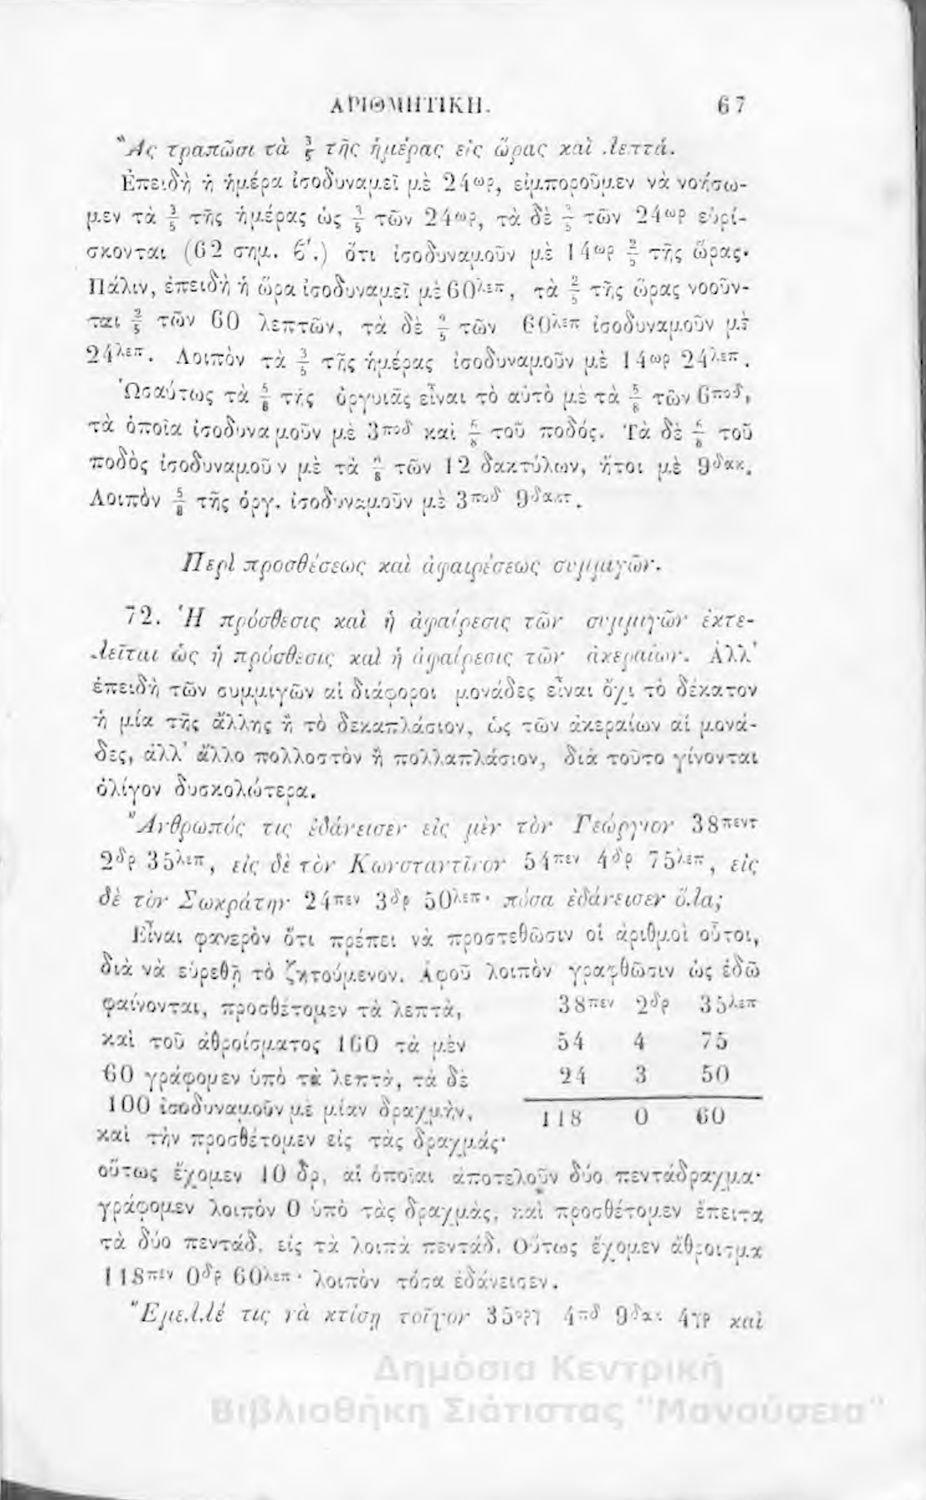 ΑΡΙΘΜΗΤΙΚΗ. 67
Ἂς τραπῶσι τὰ 3/5 τῆς ἡμέρας εἰς ὥρας καὶ λεπτά.
Ἐπειδὴ ἡ ἡμέρα ἰσοδυναμεῖ μὲ 24ωρ, εἰμποροῦμεν νὰ νοήσω-
μεν τὰ 3/5 τῆς ἡμέρας ὡς 3/5 τῶν 24ωρ, τὰ δὲ 3/5 τῶν 24ωρ εὑρί-
σκονται (62 σημ. β΄.) ὅτι ἰσοδυναμοῦν μὲ 14ωρ 2/5 τῆς ὥρας·
Πάλιν, ἐπειδὴ ἡ ὥρα ἰσοδυναμεῖ μὲ 60λεπ, τὰ 2/5 τῆς ὥρας νοοῦν-
ται 2/5 τῶν 60 λεπτῶν, τὰ δὲ 2/5 τῶν 60λεπ ἰσοδυναμοῦν μὲ
24λεπ. Λοιπὸν τὰ 3/5 τῆς ἡμέρας ἰσοδυναμοῦν μὲ 14ωρ 24λεπ.
Ὡσαύτως τὰ 5/8 τῆς ὀργυιᾶς εἶναι τὸ αὐτὸ μὲ τὰ 5/8 τῶν 6ποδ,
τὰ ὁποῖα ἰσοδυναμοῦν μὲ 3ποδ καὶ 6/8 τοῦ ποδός. Τὰ δὲ 6/8 τοῦ
ποδὸς ἰσοδυναμοῦν μὲ τὰ 6/8 τῶν 12 δακτύλων, ἤτοι μὲ 9δακ.
Λοιπὸν 5/8 τῆς ὀργ. ἰσοδυναμοῦν μὲ 3ποδ 9δακτ.
Περὶ προσθέσεως καὶ ἀφαιρέσεως συμμιγῶν.
72. Ἡ πρόσθεσις καὶ ἡ ἀφαίρεσις τῶν συμμιγῶν ἐκτε-
λεῖται ὡς ἡ πρόσθεσις καὶ ἡ ἀφαίρεσις τῶν ἀκεραίων. Ἀλλ'
ἐπειδὴ τῶν συμμιγῶν αἱ διάφοροι μονάδες εἶναι ὄχι τὸ δέκατον
ἡ μία τῆς ἄλλης ἢ τὸ δεκαπλάσιον, ὡς τῶν ἀκεραίων αἱ μονά-
δες, ἀλλ' ἄλλο πολλοστὸν ἢ πολλαπλάσιον, διὰ τοῦτο γίνονται
ὀλίγον δυσκολώτερα.
Ἄνθρωπός τις ἐδάνεισεν εἰς μὲν τὸν Γεώργιον 38πεντ
2δρ 35λεπ, εἰς δὲ τὸν Κωνσταντῖνον 54πεν 4δρ 75λεπ, εἰς
δὲ τὸν Σωκράτην 24πεν 3δρ 50λεπ· πόσα ἐδάνεισεν ὅλα;
Εἶναι φανερὸν ὅτι πρέπει νὰ προστεθῶσιν οἱ ἀριθμοὶ οὗτοι,
διὰ νὰ εὑρεθῇ τὸ ζητούμενον. Ἀφοῦ λοιπὸν γραφθῶσιν ὡς ἐδῶ
φαίνονται, προσθέτομεν τὰ λεπτὰ, 38πεν 2δρ 35λεπ
καὶ τοῦ ἀθροίσματος 160 τὰ μὲν 54 4 75
60 γράφομεν ὑπὸ τὰ λεπτὰ, τὰ δὲ 24 3 50
100 ἰσοδυναμοῦν μὲ μίαν δραχμὴν, 118 0 60
καὶ τὴν προσθέτομεν εἰς τὰς δραχμάς·
οὕτως ἔχομεν 10 δρ, αἱ ὁποῖαι ἀποτελοῦν δύο πεντάδραχμα·
γράφομεν λοιπὸν 0 ὑπὸ τὰς δραχμὰς, καὶ προσθέτομεν ἔπειτα
τὰ δύο πεντάδ. εἰς τὰ λοιπὰ πεντάδ. Οὕτως ἔχομεν ἄθροισμα
118πεν 0δρ 60λεπ· λοιπὸν τόσα ἐδάνεισεν.
Ἔμελλέ τις νὰ κτίσῃ τοῖχον 35οργ 4πδ 9δακ 4γρ καὶ
Δημόσια Κεντρική
Βιβλιοθήκη Σιάτιστας "Μανούσεια"